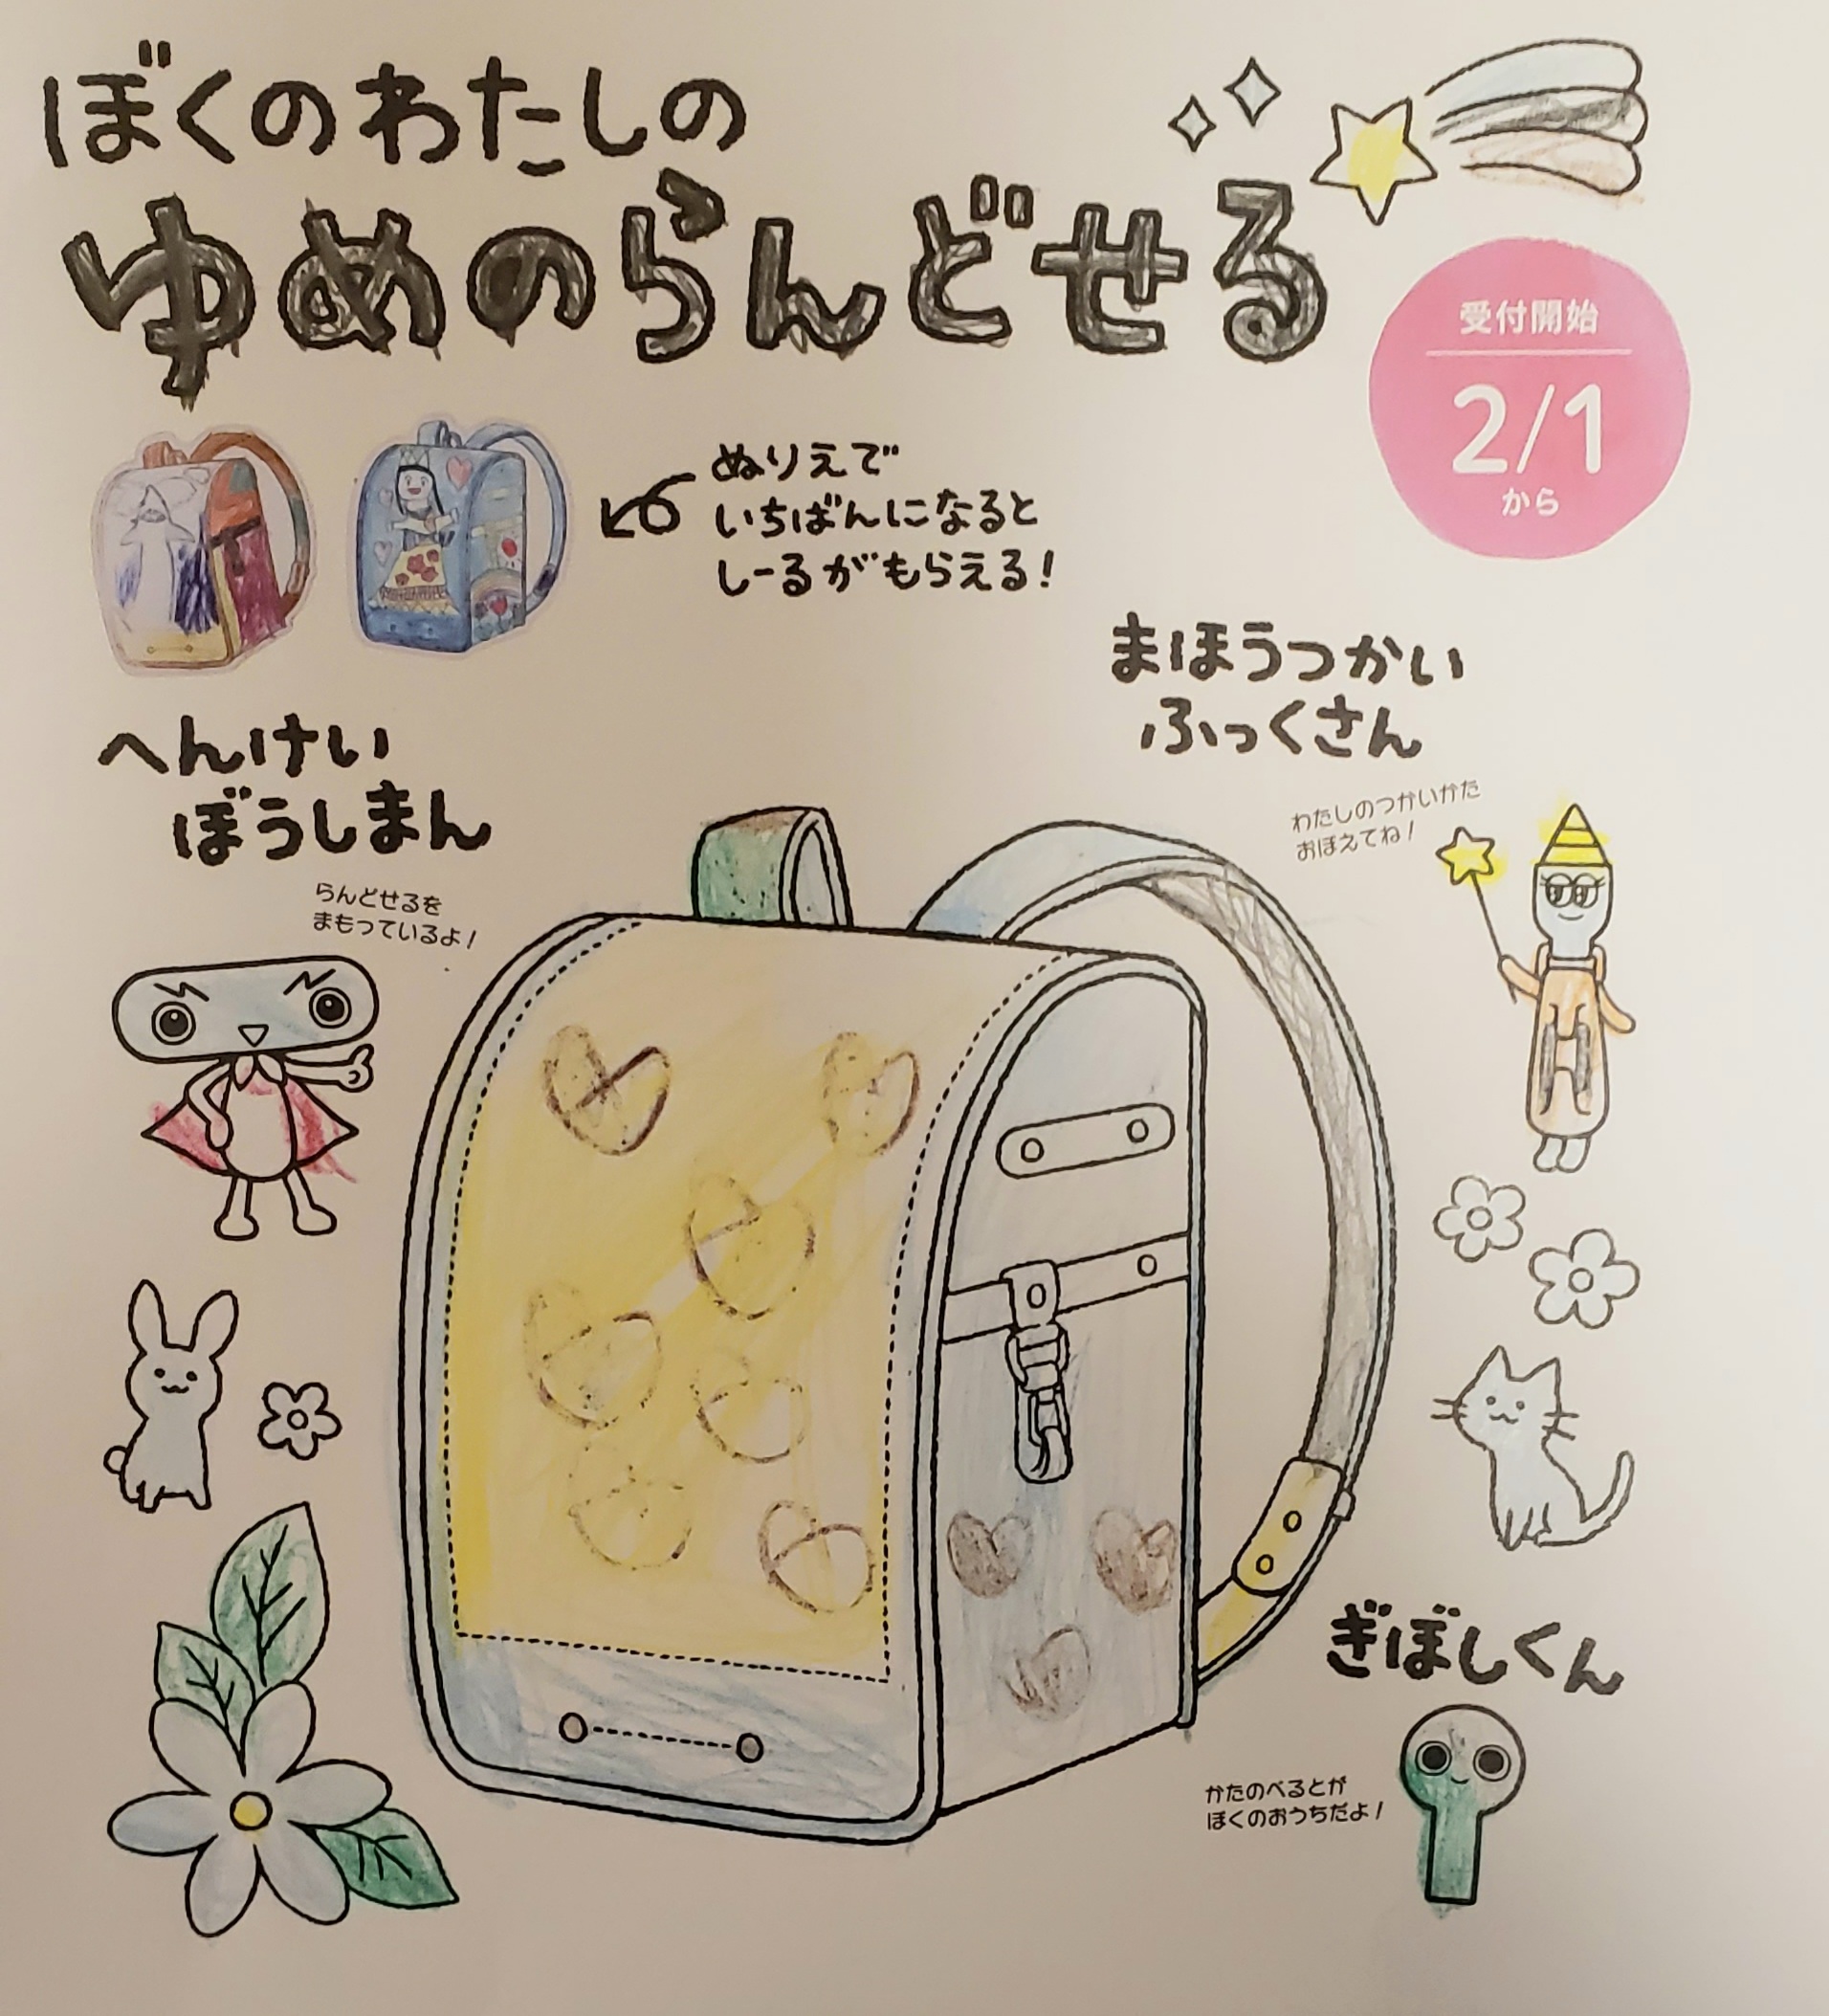 ぼくのわたしの
ゆめのらんどせる
受付開始
2/1
から
ぬりえで
いちばんになると
しーるがもらえる！
まほうつかい
ふっくさん
わたしのつかいかた
おぼえてね！
へんけい
ぼうしまん
らんどせるを
まもっているよ！
ぎぼしくん
かたのべるとが
ぼくのおうちだよ！